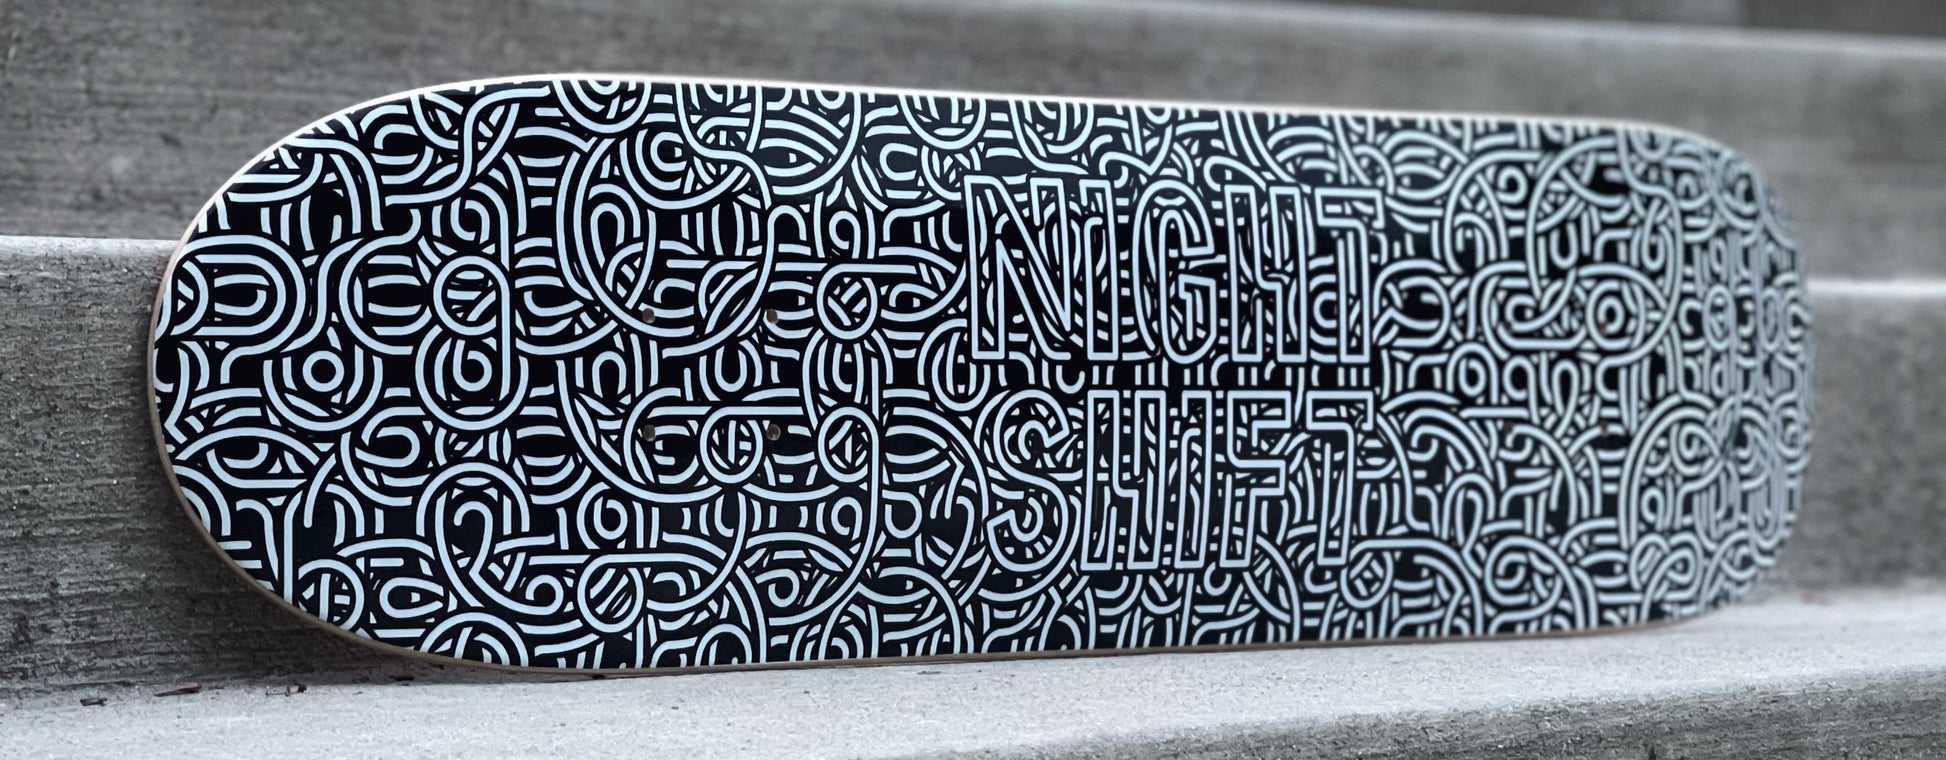 NIGHT
SHIFT